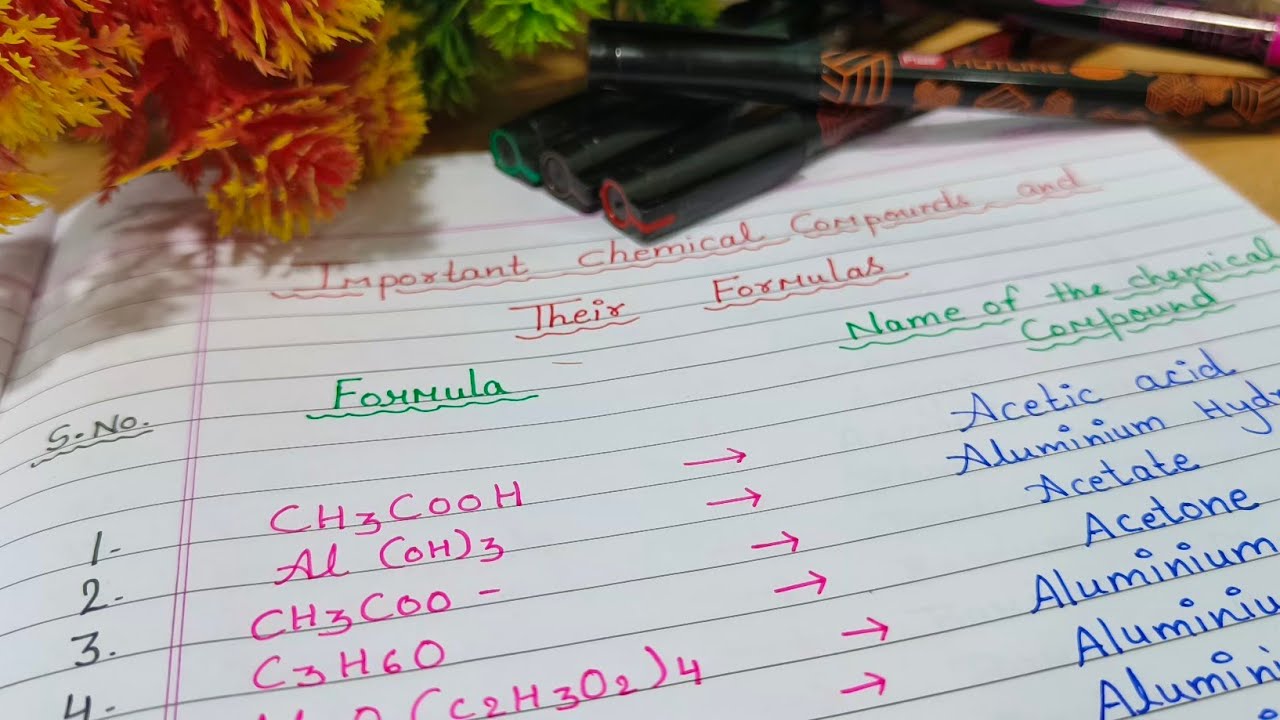 Important Chemical Compounds and
Their Formulas
S.No. Formula Name of the chemical
compound
1. CH3COOH → Acetic acid
2. Al (OH)3 → Aluminium
3. CH3COO - → Acetate
4. C3H6O → Acetone
(C2H3O2)4 → Aluminium
→